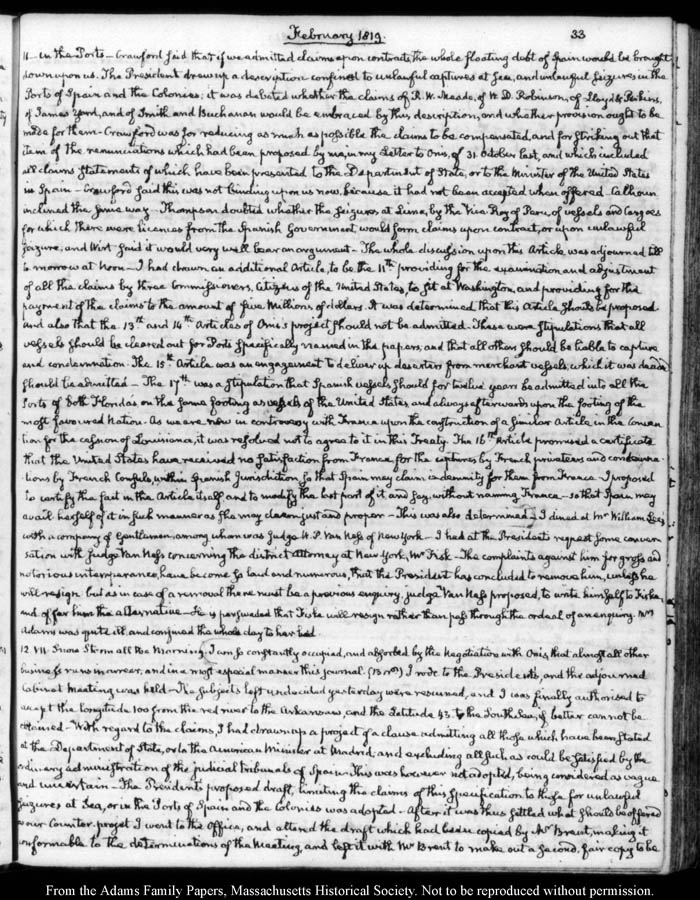 February 1819.
33
11 in the Ports – Crawford said that if we admitted claims upon contracts the whole floating debt of Spain would be brought
down upon us. The President drew up a description confined to unlawful captures at Sea, and unlawful seizures in the
Ports of Spain and the Colonies; it was debated whether the claims of R. W. Meade, of W. D. Robinson, of Lloyd & Perkins,
of James Yard, and of Smith and Buchanan would be embraced by this description, and whether provision ought to be
made for them – Crawford was for reducing as much as possible the claims to be compensated, and for striking out that
item of the renunciations which had been proposed by me, in my Letter to Onis, of 31 October last, and which included
all claims statements of which have been presented to the Department of State, or to the Minister of the United States
in Spain – Crawford said this was not binding upon us now, because it had not been accepted when offered. Calhoun
inclined the same way – Thompson doubted whether the seizures at Lima, by the Vice Roy of Peru, of vessels and Cargoes
for which there were licences from the Spanish Government would form claims upon contract, or upon unlawful
seizure, and Wirt said it would very well bear an argument – The whole discussion upon this Article was adjourned till
to morrow at Noon – I had drawn an additional Article, to be the 11th providing for the examination and adjustment
of all the claims by three Commissioners, Citizens of the United States, to sit at Washington, and providing for the
payment of the claims to the amount of five Millions of dollars. It was determined that this Article should be proposed
and also that the 13th and 14th Articles of Onis's project should not be admitted. These were stipulations that all
vessels should be cleared out for Ports specifically named in the papers, and that all others should be liable to capture
and condemnation. The 15th Article was an engagement to deliver up deserters from merchant vessels, which it was
should be admitted – The 17th was a stipulation that Spanish vessels should for twelve years be admitted into all the
Ports of both Florida's on the same footing as vessels of the United States and always afterwards upon the footing of the
most favoured Nation. As we are now in controversy with France upon the construction of a similar Article in the Conven
tion for the cession of Louisiana, it was resolved not to agree to it in this Treaty. The 16th Article promised a certificate
that the United States have received no satisfaction from France, for the captures by French privateers and condemna
tions by French Consuls, within Spanish Jurisdiction so that Spain may claim indemnity for them from France – I proposed
to certify the fact in the Article itself and to modify the last part of it and say, without naming France – so that Spain may
avail herself of it in such manner as she may deem just and proper – This was also determined – I dined at Mr William Lee's
with a company of Gentlemen, among whom was Judge W. P. Van Ness of New York – I had at the President's request some conver
sation with Judge Van Ness concerning the district Attorney at New York, Mr Fisk – The complaints against him for gross and
notorious intemperance, have become so loud and numerous, that the President has concluded to remove him, unless he
will resign but as in case of a removal there must be a previous enquiry, judge Van Ness proposed, to write himself to Fiske,
and offer him the alternative – He is persuaded that Fiske will resign rather than pass through the ordeal of an enquiry. Mrs
Adams was quite ill and confined the whole day to her bed
12. VII. Snow Storm all the Morning. I am so constantly occupied, and absorbed by the Negotiation with Onis, that almost all other
business runs in arrear, and in a most especial manner this journal. I rode to the President's, and the adjourned
Cabinet Meeting was held – The subjects left undecided yesterday were resumed, and I was finally authorised to
accept the longitude 100 from the red river to the Arkansaw, and the Latitude 43. to the South Sea, if better cannot be
obtained – With regard to the claims, I had drawn up a project of a clause admitting all those which have been stated
at the Department of State, or to the American Minister at Madrid and excluding all such as could be satisfied by the
ordinary administration of the judicial tribunals of Spain. This was however not adopted, being considered as vague
and uncertain – The President's proposed draft, limiting the claims of this specification to those for unlawful
seizures at Sea, or in the Ports of Spain and the Colonies was adopted – After it was thus settled what should be offered
as our Counter-projet I went to the Office, and altered the draft which had been copied by Mr Brent, making it
conformable to the determinations of the Meeting, and left it with Mr Brent to make out a second, fair copy to be
From the Adams Family Papers, Massachusetts Historical Society. Not to be reproduced without permission.